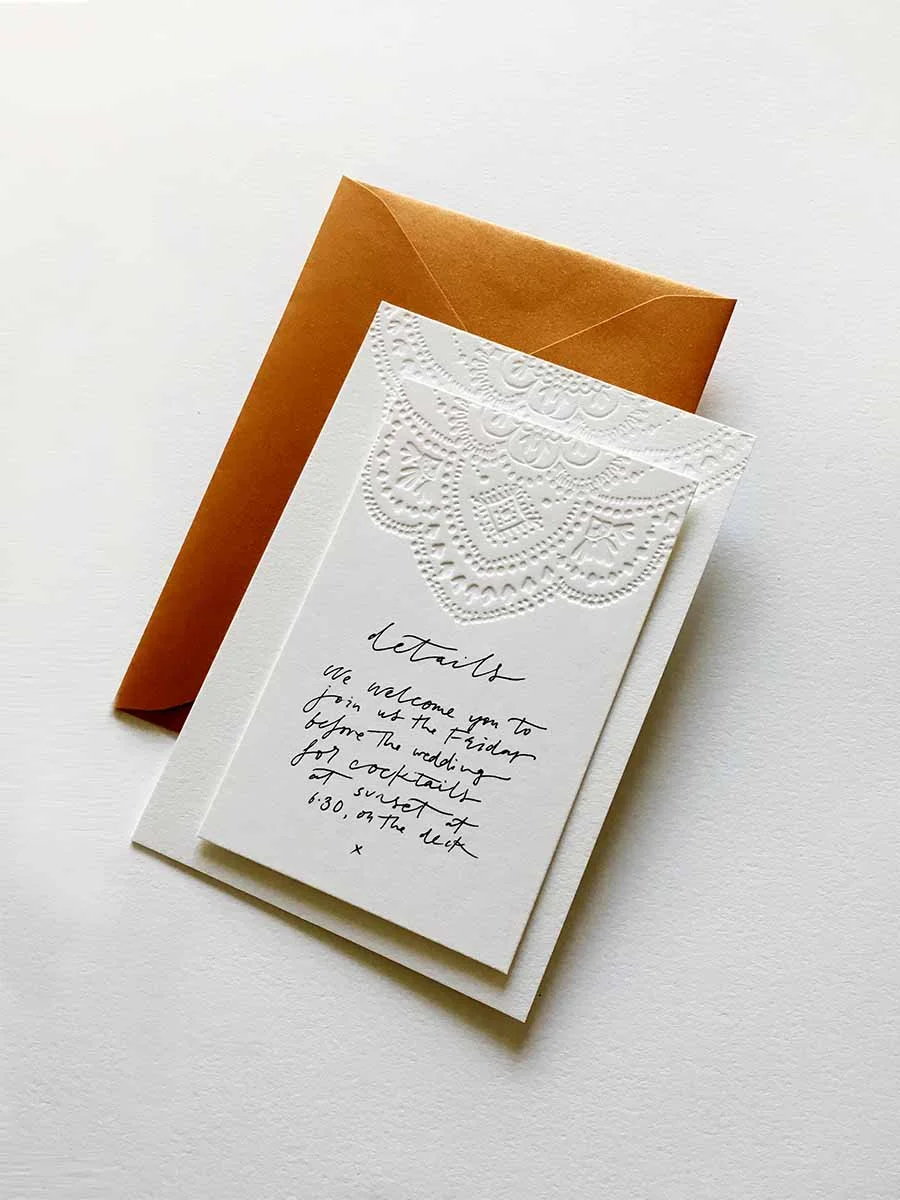 details
We welcome you to
join us the Friday
before the wedding
for cocktails
at sunset at
6.30, on the deck
x